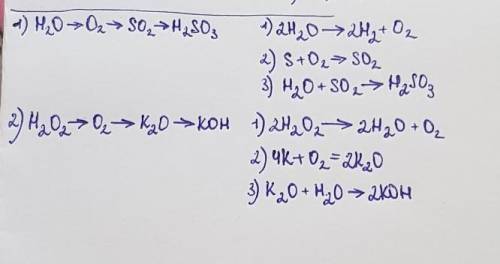 1) H₂O → O₂ → SO₂ → H₂SO₃
1) 2H₂O → 2H₂ + O₂
2) S + O₂ ⇒ SO₂
3) H₂O + SO₂ → H₂SO₃
2) H₂O₂ → O₂ → K₂O → KOH
1) 2H₂O₂ → 2H₂O + O₂
2) 4K + O₂ = 2K₂O
3) K₂O + H₂O → 2KOH